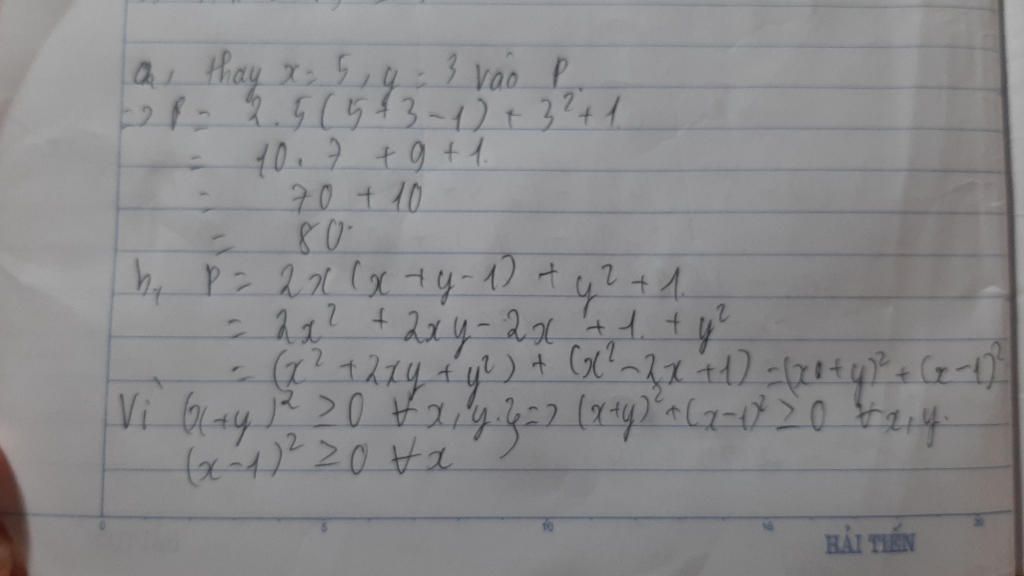 a, thay x = 5, y = 3 vào P.
=> P = 2.5(5+3-1) + 3² + 1.
= 10.7 + 9 + 1.
= 70 + 10
= 80.
b, P = 2x(x+y-1) + y² + 1.
= 2x² + 2xy - 2x + 1. + y²
= (x² + 2xy + y²) + (x² - 2x + 1) = (x+y)² + (x-1)²
Vì (x+y)² ≥ 0 ∀x,y. } => (x+y)² + (x-1)² ≥ 0 ∀x,y.
(x-1)² ≥ 0 ∀x
0 5 10 15 20
HẢI TIẾN